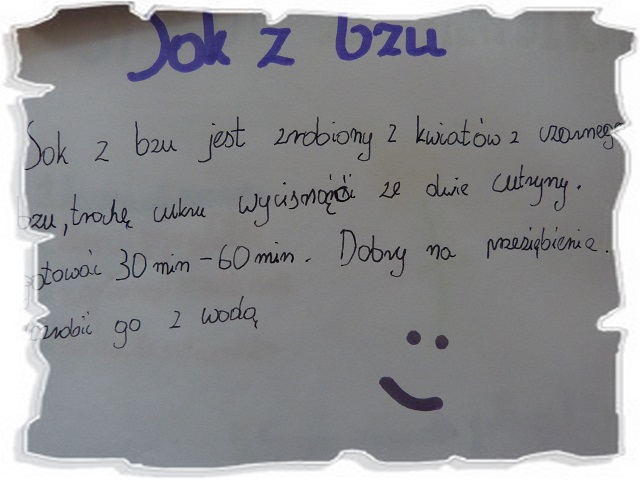 Sok z bzu
Sok z bzu jest zrobiony z kwiatów z czarnego
bzu, trochę cukru wycisnąć ze dwie cytryny.
gotować 30 min - 60 min. Dobry na przeziębienie.
rozrobić go z wodą